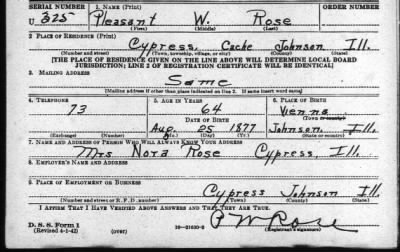 SERIAL NUMBER 1. NAME (Print) ORDER NUMBER
U 325 Pleasant W. Rose
(First) (Middle) (Last)
2. PLACE OF RESIDENCE (Print)
Cypress, Cache Johnson Ill.
(Number and street) (Town, township, village, or city) (County) (State)
[THE PLACE OF RESIDENCE GIVEN ON THE LINE ABOVE WILL DETERMINE LOCAL BOARD
JURISDICTION; LINE 2 OF REGISTRATION CERTIFICATE WILL BE IDENTICAL]
3. MAILING ADDRESS
Same
[Mailing address if other than place indicated on line 2. If same insert word same]
4. TELEPHONE 5. AGE IN YEARS 6. PLACE OF BIRTH
73 64 Vienna
DATE OF BIRTH (Town or county)
Aug. 25 1877 Johnson, Ill.
(Exchange) (Number) (Mo.) (Day) (Yr.) (State or country)
7. NAME AND ADDRESS OF PERSON WHO WILL ALWAYS KNOW YOUR ADDRESS
Mrs Nora Rose Cypress, Ill.
8. EMPLOYER'S NAME AND ADDRESS
9. PLACE OF EMPLOYMENT OR BUSINESS
Cypress Johnson Ill.
(Number and street or R. F. D. number) (Town) (County) (State)
I AFFIRM THAT I HAVE VERIFIED ABOVE ANSWERS AND THAT THEY ARE TRUE.
P W Rose
D. S. S. Form 1
(Revised 4-1-42) (over) 16-21630-2 (Registrant's signature)